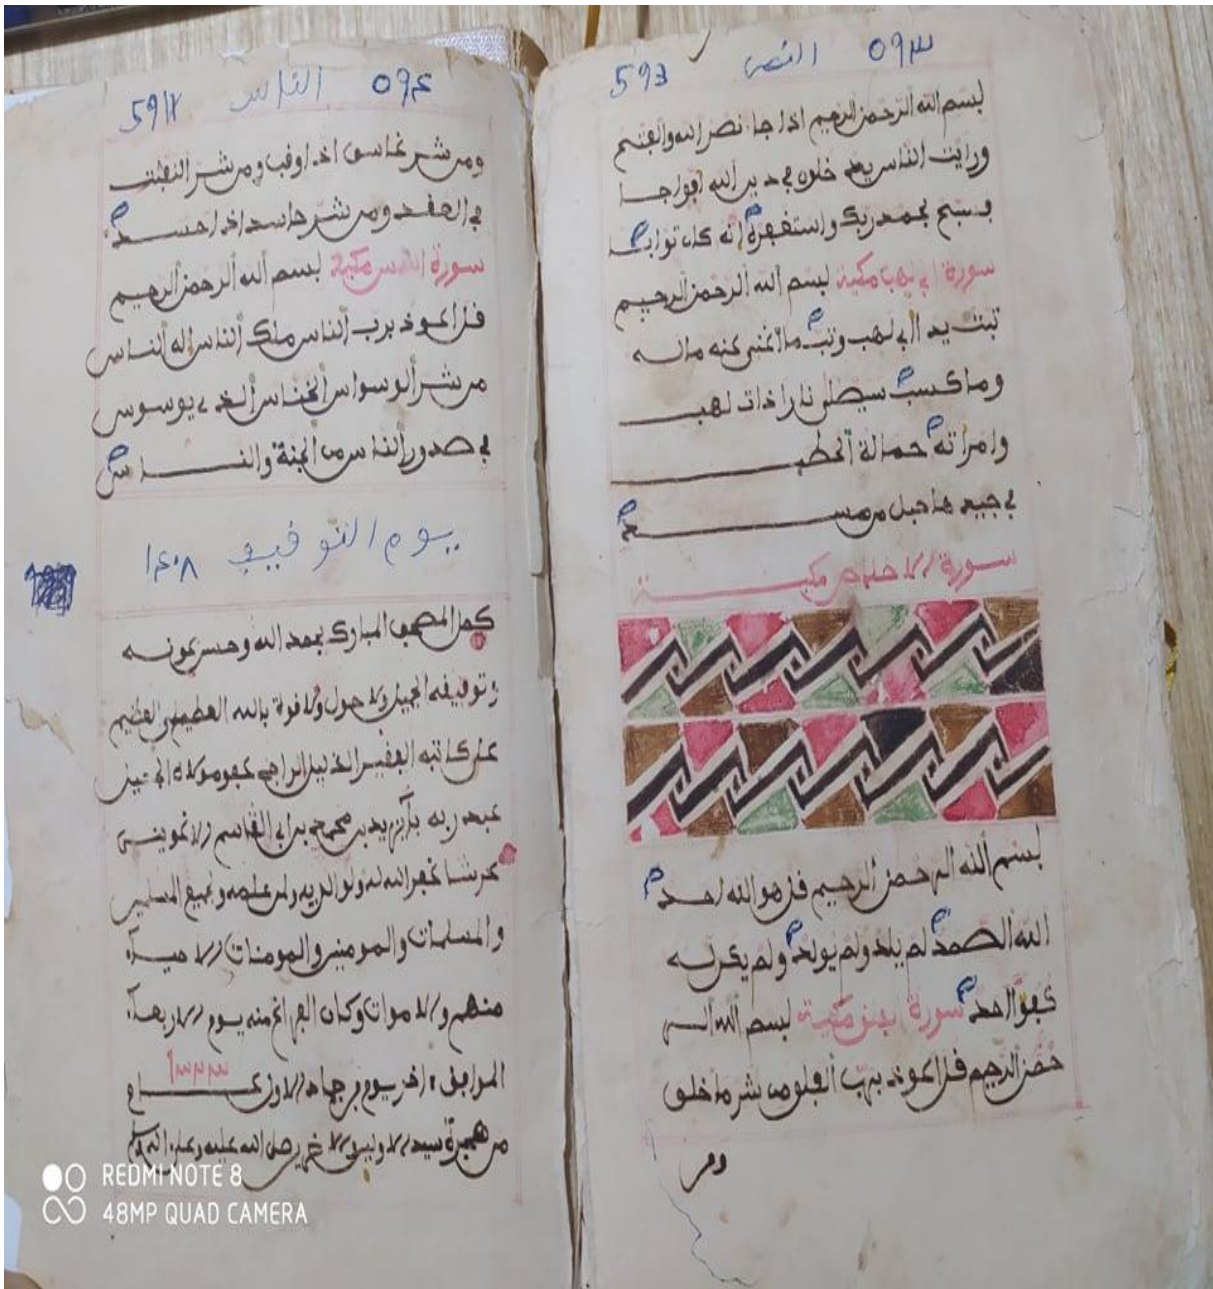 593 النصر ٥٩٣
بسم الله الرحمن الرحيم اذا جا نصر الله والفتح
ورايت الناس يدخلون في دين الله افواجا
فسبح بحمد ربك واستغفره انه كان توابا
سورة ابي لهب مكية بسم الله الرحمن الرحيم
تبت يدا ابي لهب وتب ما اغنى عنه ماله
وما كسب سيصلى نارا ذات لهب
وامراته حمالة الحطب
في جيدها حبل من مسد
سورة الاخلاص مكية
بسم الله الرحمن الرحيم قل هو الله احد
الله الصمد لم يلد ولم يولد ولم يكن له
كفؤا احد سورة مكية بسم الله الر
حمن الرحيم قل اعوذ برب الفلق من شر ما خلق
ومن
594 الناس ٥٩٤
ومن شر غاسق اذا وقب ومن شر النفثت
في العقد ومن شر حاسد اذا حسد
سورة الناس مكية بسم الله الرحمن الرحيم
قل اعوذ برب الناس ملك الناس اله الناس
من شر الوسواس الخناس الذي يوسوس
في صدور الناس من الجنة والناس
يوم التوفيق ١٤٠٨
كمل المصحف المبارك بحمد الله وحسن عونه
وتوفيقه الجميل ولا حول ولا قوة بالله العظيم
على كاتبه الفقير الذليل الراجي عفو مولاه
عبد ربه بن محمد بن ابي القاسم
غفر الله له ولوالديه ولمن علمه ولجميع المسلمين
والمسلمات والمومنين والمومنات الاحياء
منهم والاموات وكان الفراغ منه يوم الاربعاء
الموافق اخر يوم من جماد الاول عام ١٣٣٣
من هجرة سيد الاولين والاخرين صلى الله عليه وعلى اله
REDMI NOTE 8
48MP QUAD CAMERA